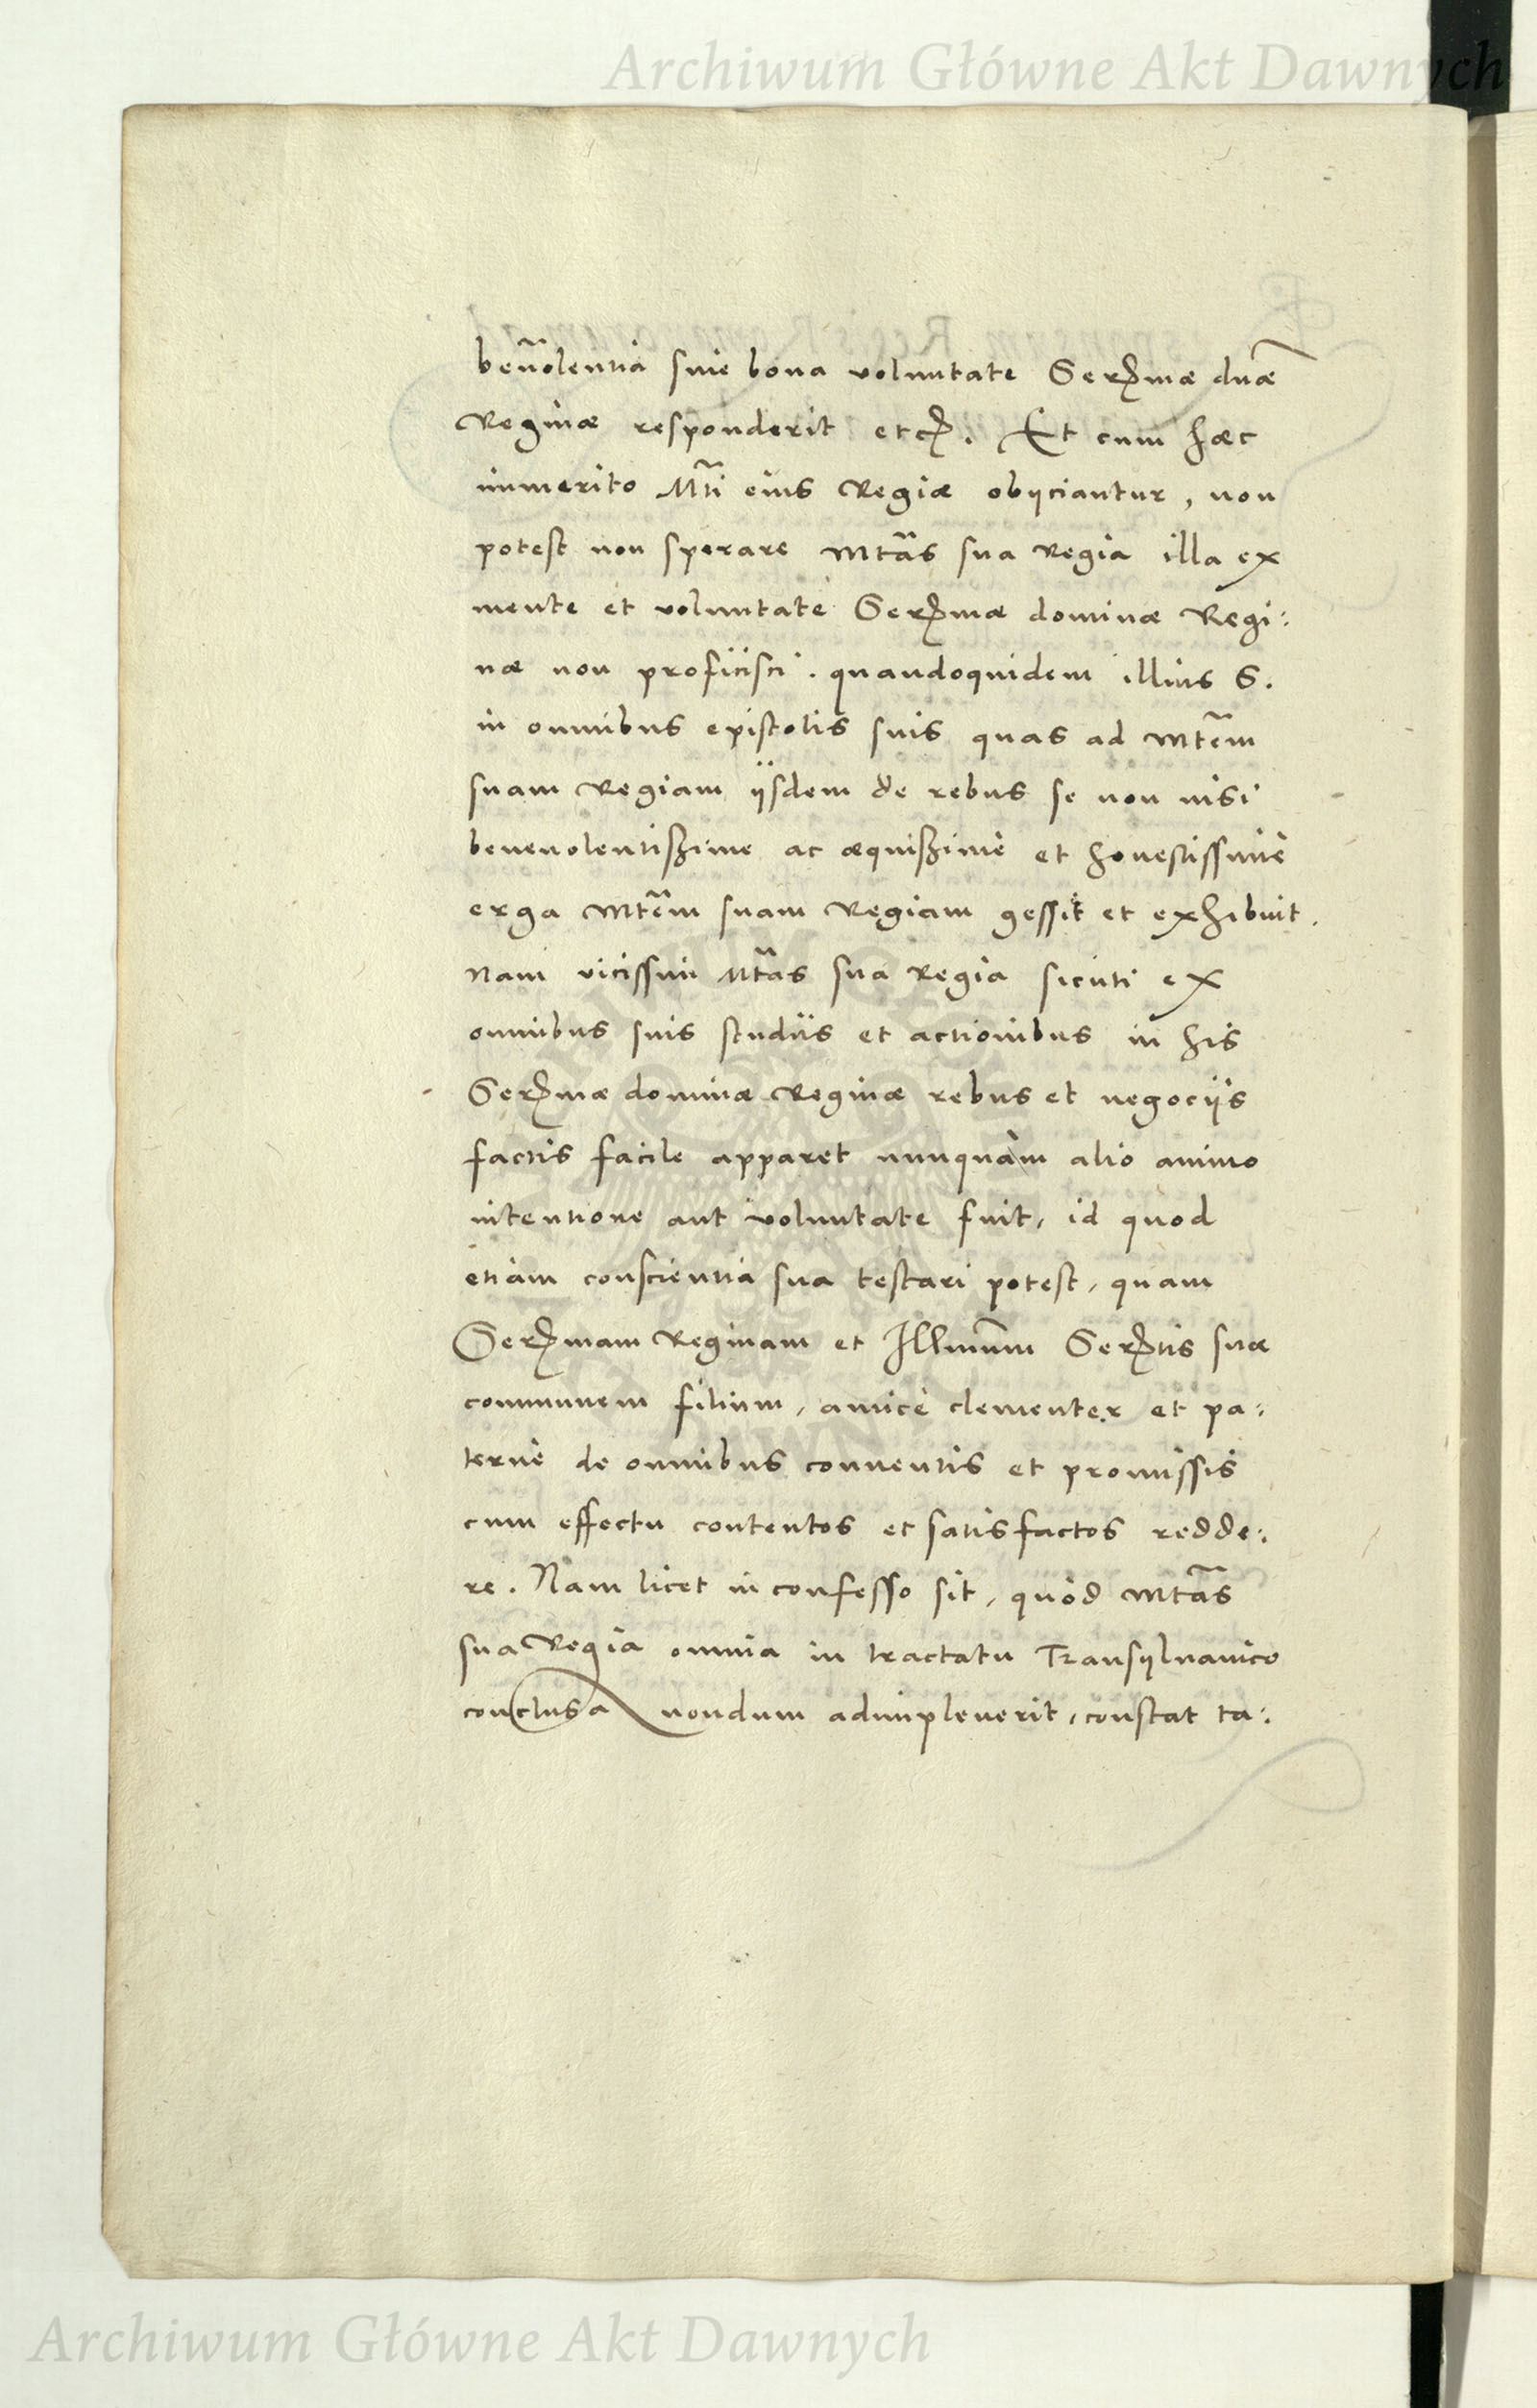 Archiwum Główne Akt Dawnych
beñolentia siue bona voluntate Serᵐmæ dnãe
Reginæ responderit etc. Et cum hæc
immerito Mti̅ eius Regiæ obijciantur, non
potest non sperare Mta̅s sua Regia illa ex
mente et voluntate Serᵐmæ dominæ Regi:
næ non proficisci. quandoquidem illius S.
in omnibus epistolis suis quas ad Mte̅m
suam Regiam ijsdem de rebus se non nisi
beneuolentissime ac æquissimè et honestissimè
erga Mte̅m suam Regiam gessit et exhibuit.
Nam vicissim Mta̅s sua Regia sicuti ex
omnibus suis studiis et actionibus in his
Serᵐmæ dominæ Reginæ rebus et negociis
factis facile apparet nunquàm alio animo
intentione aut voluntate fuit, id quod
etiam conscientia sua testari potest, quam
Serᵐmam Reginam et Illmu̅m Serᵗtis suæ
communem filium, amicè clementer et pa:
ternè de omnibus conuentis et promissis
cum effectu contentos et satisfactos redde:
re. Nam licet in confesso sit, quòd Mta̅s
sua Regia omnia in tractatu Transyluanico
conclusa nondum adimpleuerit, constat ta:
Archiwum Główne Akt Dawnych